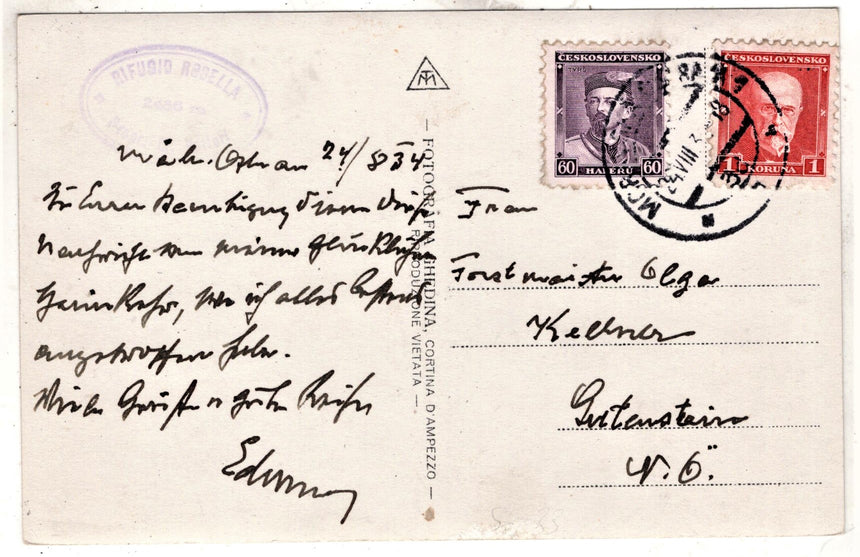 RIFUGIO
TM
ČESKOSLOVENSKO
TYRŠ
60 HALÉŘŮ 60
ČESKOSLOVENSKO
1 KORUNA 1
24.VIII.34
Mähr. Ostrau 24/8 34
Zu Ihrer diese
Nachricht von meiner glücklichen
Heimkehr, wo ich alles bestens
angetroffen habe.
Viele Grüße
— FOTOGRAFIA GHEDINA, CORTINA D'AMPEZZO —
RIPRODUZIONE VIETATA —
Frau
Forstmeister Olga
Kellner
Gutenstein
N. Ö.